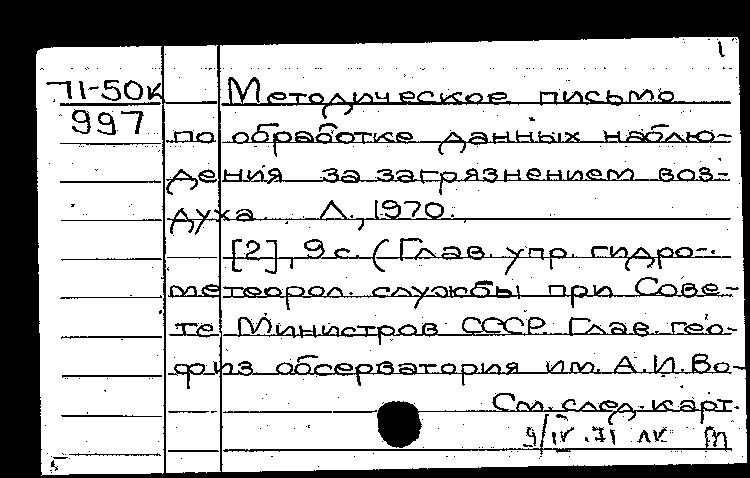 1
71-50к Методическое письмо
997 по обработке данных наблю-
дения за загрязнением воз-
духа Л., 1970.
[2], 9 с. (Глав. упр. гидро-
метеорол. службы при Сове-
те Министров СССР. Глав. гео-
физ обсерватория им. А.И. Во-
См. след. карт.
9/IV.71 лк т